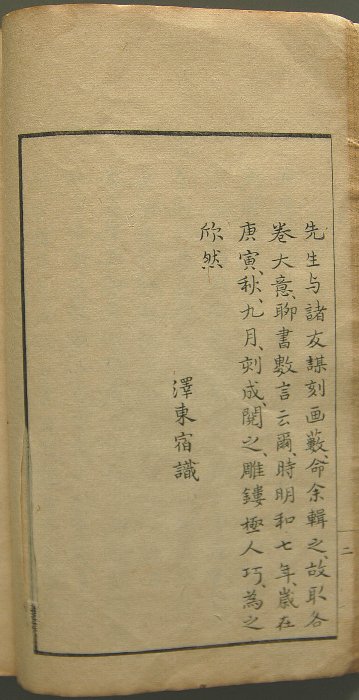 先生与諸友謀刻画藪、命余輯之、故取各
卷大意、聊書數言云爾、時明和七年、歳在
庚寅、秋、九月、刻成、閱之、雕鏤極人巧、為之
欣然
澤東宿識
二